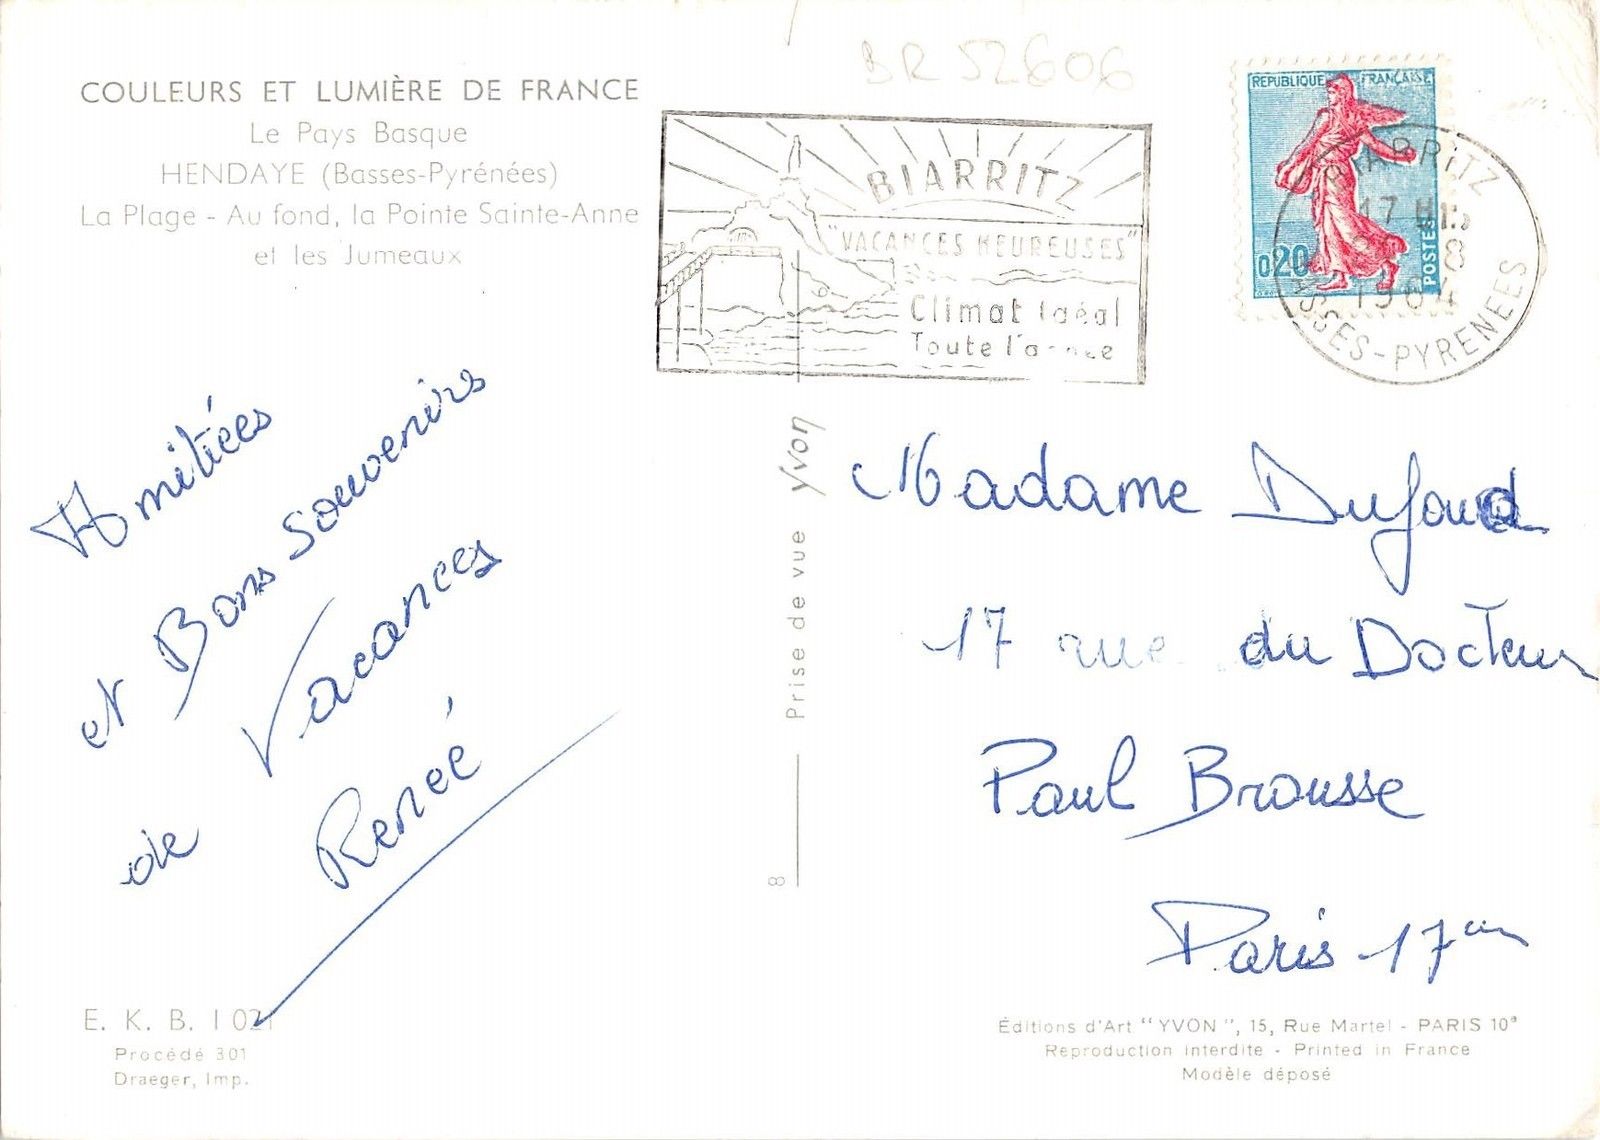 BR 52606
COULEURS ET LUMIÈRE DE FRANCE
Le Pays Basque
HENDAYE (Basses-Pyrénées)
La Plage - Au fond, la Pointe Sainte-Anne
et les Jumeaux
BIARRITZ
"VACANCES HEUREUSES"
Climat Idéal
Toute l'année
REPUBLIQUE FRANÇAISE
0,20
POSTES
BIARRITZ
17 H15
8
1964
BASSES-PYRENEES
Amitiées
et Bons Souvenirs
Vacances
de Renée
Prise de vue Yvon
8
Madame
17 rue du Docteur
Paul Brousse
Paris 17em
E. K. B. 1 021
Procédé 301
Draeger, Imp.
Éditions d'Art "YVON", 15, Rue Martel - PARIS 10ª
Reproduction interdite - Printed in France
Modèle déposé